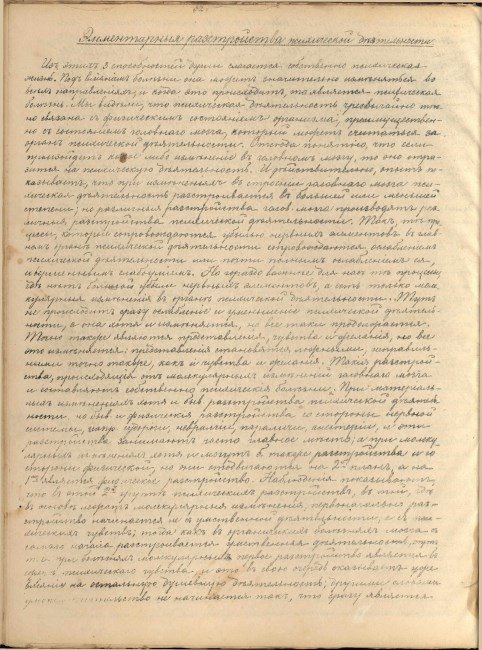 Элементарныя разстройства психической дѣятельности.
Изъ этихъ 3 способностей души слагается собственно психическая
жизнь. Подъ вліяніемъ болѣзни она можетъ значительно измѣняться во
всѣхъ направленіяхъ, и когда это происходитъ, то является психическая
болѣзнь. Мы видѣли, что психическая дѣятельность чрезвычайно тѣс-
но связана съ физическимъ состояніемъ организма, преимуществен-
но съ состояніемъ головного мозга, который можетъ считаться за
органъ психической дѣятельности. Отсюда понятно, что если
произойдетъ какое либо измѣненіе въ головномъ мозгу, то оно отра-
зится на психическую дѣятельность. И дѣйствительно, опытъ по-
казываетъ, что при измѣненіяхъ въ строеніи головного мозга пси-
хическая дѣятельность разстраивается въ большей или меньшей
степени; но различныя разстройства головного мозга производятъ раз-
личныя разстройства психической дѣятельности. Такъ, тѣ про-
цессы, которые сопровождаются гибелью нервныхъ элементовъ въ глав-
номъ органѣ психической дѣятельности сопровождаются ослабленіемъ
психической дѣятельности или почти полнымъ ослабленіемъ ея,
слабоуміемъ. Но гораздо важнѣе для насъ тѣ процессы,
гдѣ нѣтъ большой гибели нервныхъ элементовъ, а есть только моле-
кулярныя измѣненія въ органѣ психической дѣятельности. Тутъ
не происходитъ сразу ослабленіе и уменьшеніе психической дѣятель-
ности, а она хотя и измѣняется, но все таки продолжается.
Точно также являются представленія, чувства и желанія, но все
это измѣняется: представленія становятся ложными, ненормаль-
ными точно также, какъ и чувства и желанія. Такія разстрой-
ства, происходящія отъ молекулярныхъ измѣненій головного мозга
и составляютъ собственно психическія болѣзни. При матеріаль-
ныхъ измѣненіяхъ хотя и быв. разстройства психической дѣятель-
ности, но быв. и физическія разстройства со стороны нервной
системы, напр. судороги, невралгіи, параличи, анестезіи, и эти
разстройства занимаютъ часто главное мѣсто; а при молеку-
лярныхъ измѣненіяхъ хотя и могутъ б. также разстройства и со
стороны физической, но они отодвигаются на 2й планъ, а на
1мъ является психическое разстройство. Наблюденія показываютъ,
что въ этой 2й группѣ психическихъ разстройствъ, въ той, гдѣ
въ основѣ лежатъ молекулярныя измѣненія, первоначально раз-
стройство начинается не въ умственной дѣятельности, а въ пси-
хическихъ чувствъ; тогда какъ въ органическихъ болѣзняхъ мозга съ
самаго начала разстраивается умственная дѣятельность,
молекулярныхъ первое разстройство является въ
психическаго чувства, и это въ свою очередь оказываетъ
вліяніе на остальную душевную дѣятельность; другими словами
не начинается такъ, что сразу является